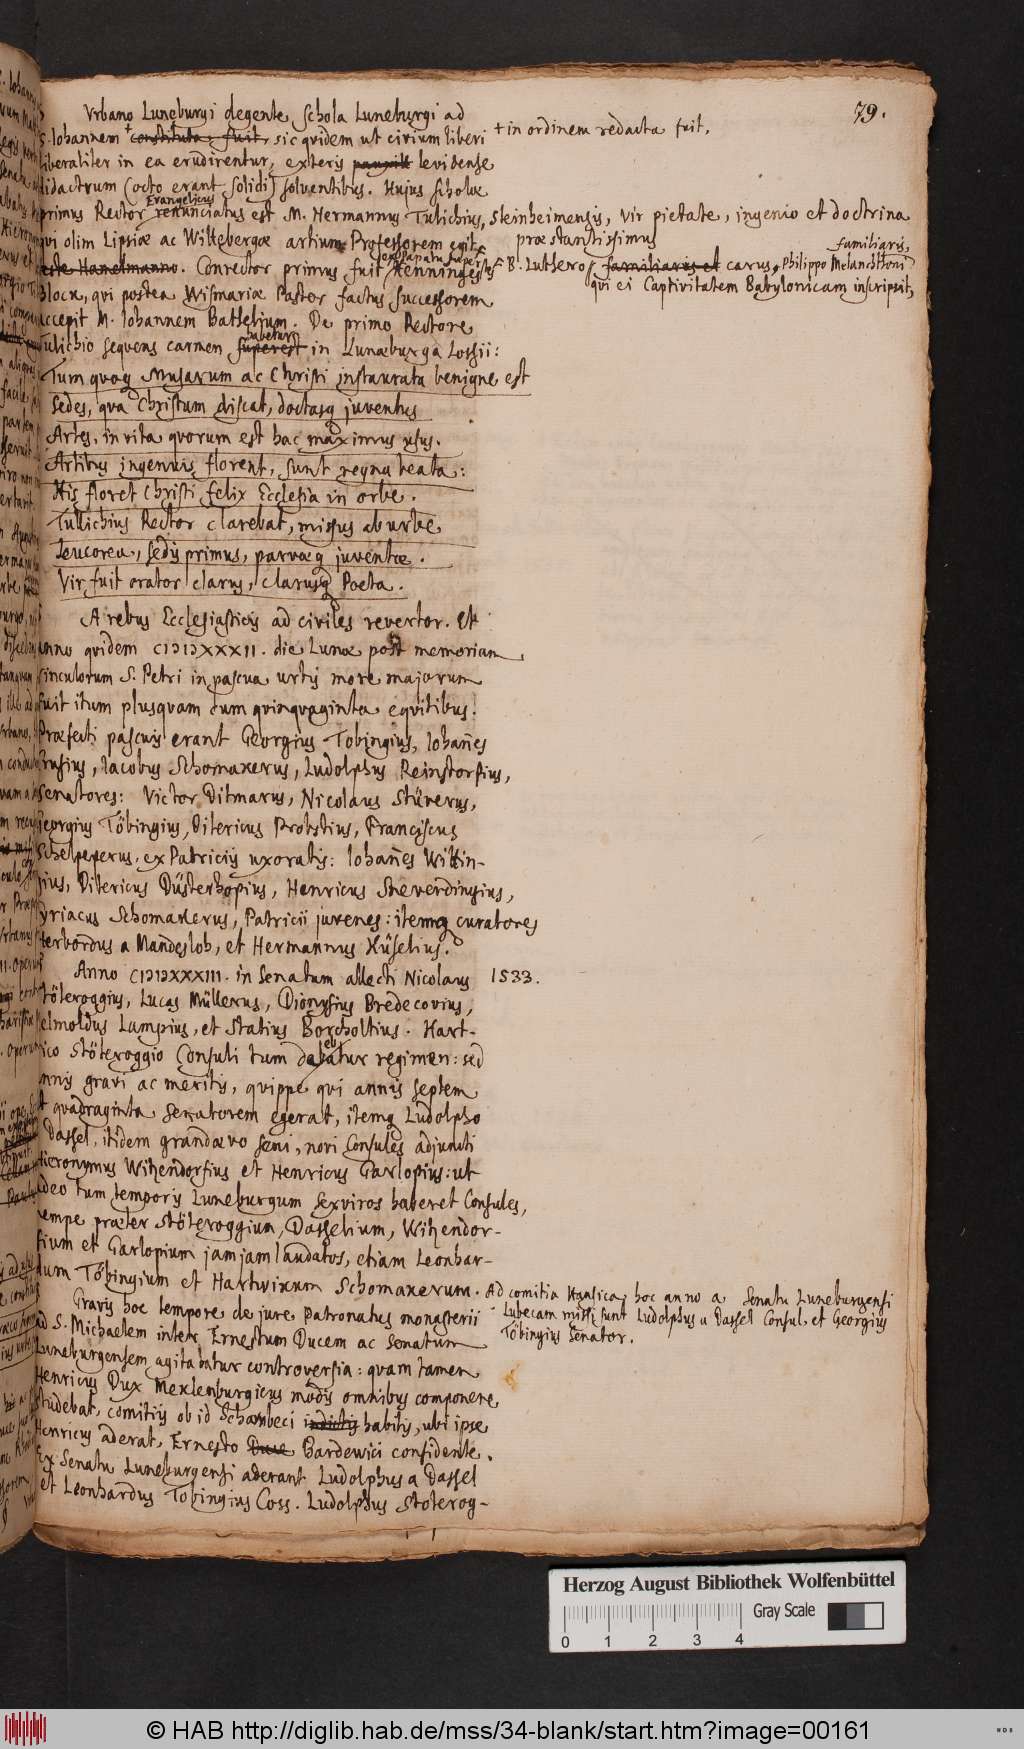 79.
Urbano Luneburgi degente, Schola Luneburgi ad
S. Iohannem + constituta fuit, sic qvidem ut civium liberi
+ in ordinem redacta fuit.
liberaliter in ea erudirentur, exteris levidense
didactrum (octo erant solidi) solventibus. Hujus scholæ
Evangelicus
primus Rector renunciatus est M. Hermannus Tulichius, Steinheimensis, vir pietate, ingenio et doctrina
præstantissimus
qvi olim Lipsiæ ac Wittebergæ artium Professorem egit,
B. Luthero familiaris et carus, Philippo Melanchthoni
familiaris,
qvi ei Captivitatem Babylonicam inscripsit,
este Hanelmanno. Conrector primus fuit Henningus
Block, qvi postea Wismariæ Pastor factus, successorem
accepit M. Iohannem Batselium. De primo Rectore
habetur
Tulichio seqvens carmen superest in Lunæburga Lossii:
Tum qvoq Musarum ac Christi instaurata benigne est
Sedes, qva Christum discat, doctasq juventus
Artes, in vita qvorum est hac maximus usus.
Artibus ingenuis florent, sunt regna beata:
His floret Christi felix Ecclesia in orbe.
Tullichius Rector clarebat, missus ab urbe
Leucorea, sedis primus, parvæq juventæ.
Vir fuit orator clarus, clarusq Poeta.
A rebus Ecclesiasticis ad civiles revertor. Et
anno qvidem CIↃIↃXXXII. die Lunæ post memoriam
vinculorum S. Petri in pascua urtis more majorum
fuit itum plusqvam cum qvinqvaginta eqvitibus.
Præfecti pascuis erant Georgius Tobingius, Iohañes
Crusius, Iacobus Schomakerus, Ludolphus Reinstorfius,
Senatores: Victor Ditmarus, Nicolaus Stüverus,
Georgius Töbingius, Ditericus Probstius, Franciscus
Schelpeperus, ex Patriciis uxoratis: Iohañes Wittin-
gius, Ditericus Düsterhopius, Henricus Sneverdingius,
Cyriacus Schomakerus, Patricii juvenes: itemq curatores
Herbordus a Mandeslob, et Hermannus Hüselius.
Anno CIↃIↃXXXIII. in Senatum allecti Nicolaus
1533.
Stöteroggius, Lucas Müllerus, Dionysius Bredecovius,
Helmoldus Lampius, et Statius Borcholtius. Hart-
vico Stöteroggio Consuli tum debatur regimen: sed
annis gravi ac meritis, qvippe qvi annis septem
et qvadraginta Senatorem egerat, itemq Ludolpho
a Dassel, itidem grandævo seni, novi Consules adjuncti
Hieronymus Witzendorfius et Henricus Garlopius: ut
adeo tum temporis Luneburgum sexviros haberet Consules,
nempe præter Stöteroggium, Dasselium, Witzendor-
fium et Garlopium jamjam laudatos, etiam Leonhar-
dum Töbingium et Hartvicum Schomakerum.
Ad comitia Hansica, hoc anno a Senatu Luneburgensi
Lubecam missi sunt Ludolphus a Dassel Consul et Georgius
Töbingius Senator.
Gravis hoc tempore de jure Patronatus monasterii
ad S. Michaelem inter Ernestum Ducem ac Senatum
Luneburgensem agitabatur controversia: qvam tamen
Henricus Dux Meklenburgicus modis omnibus componere
studebat, comitiis ob id Scharnbeci indictis habitis, ubi ipse
Henricus aderat, Ernesto Duce Bardewici considente.
Ex Senatu Luneburgensi aderant Ludolphus a Dassel
et Leonhardus Tobingius Coss. Ludolphus Stoterog-
Herzog August Bibliothek Wolfenbüttel
Gray Scale
0 1 2 3 4
© HAB http://diglib.hab.de/mss/34-blank/start.htm?image=00161